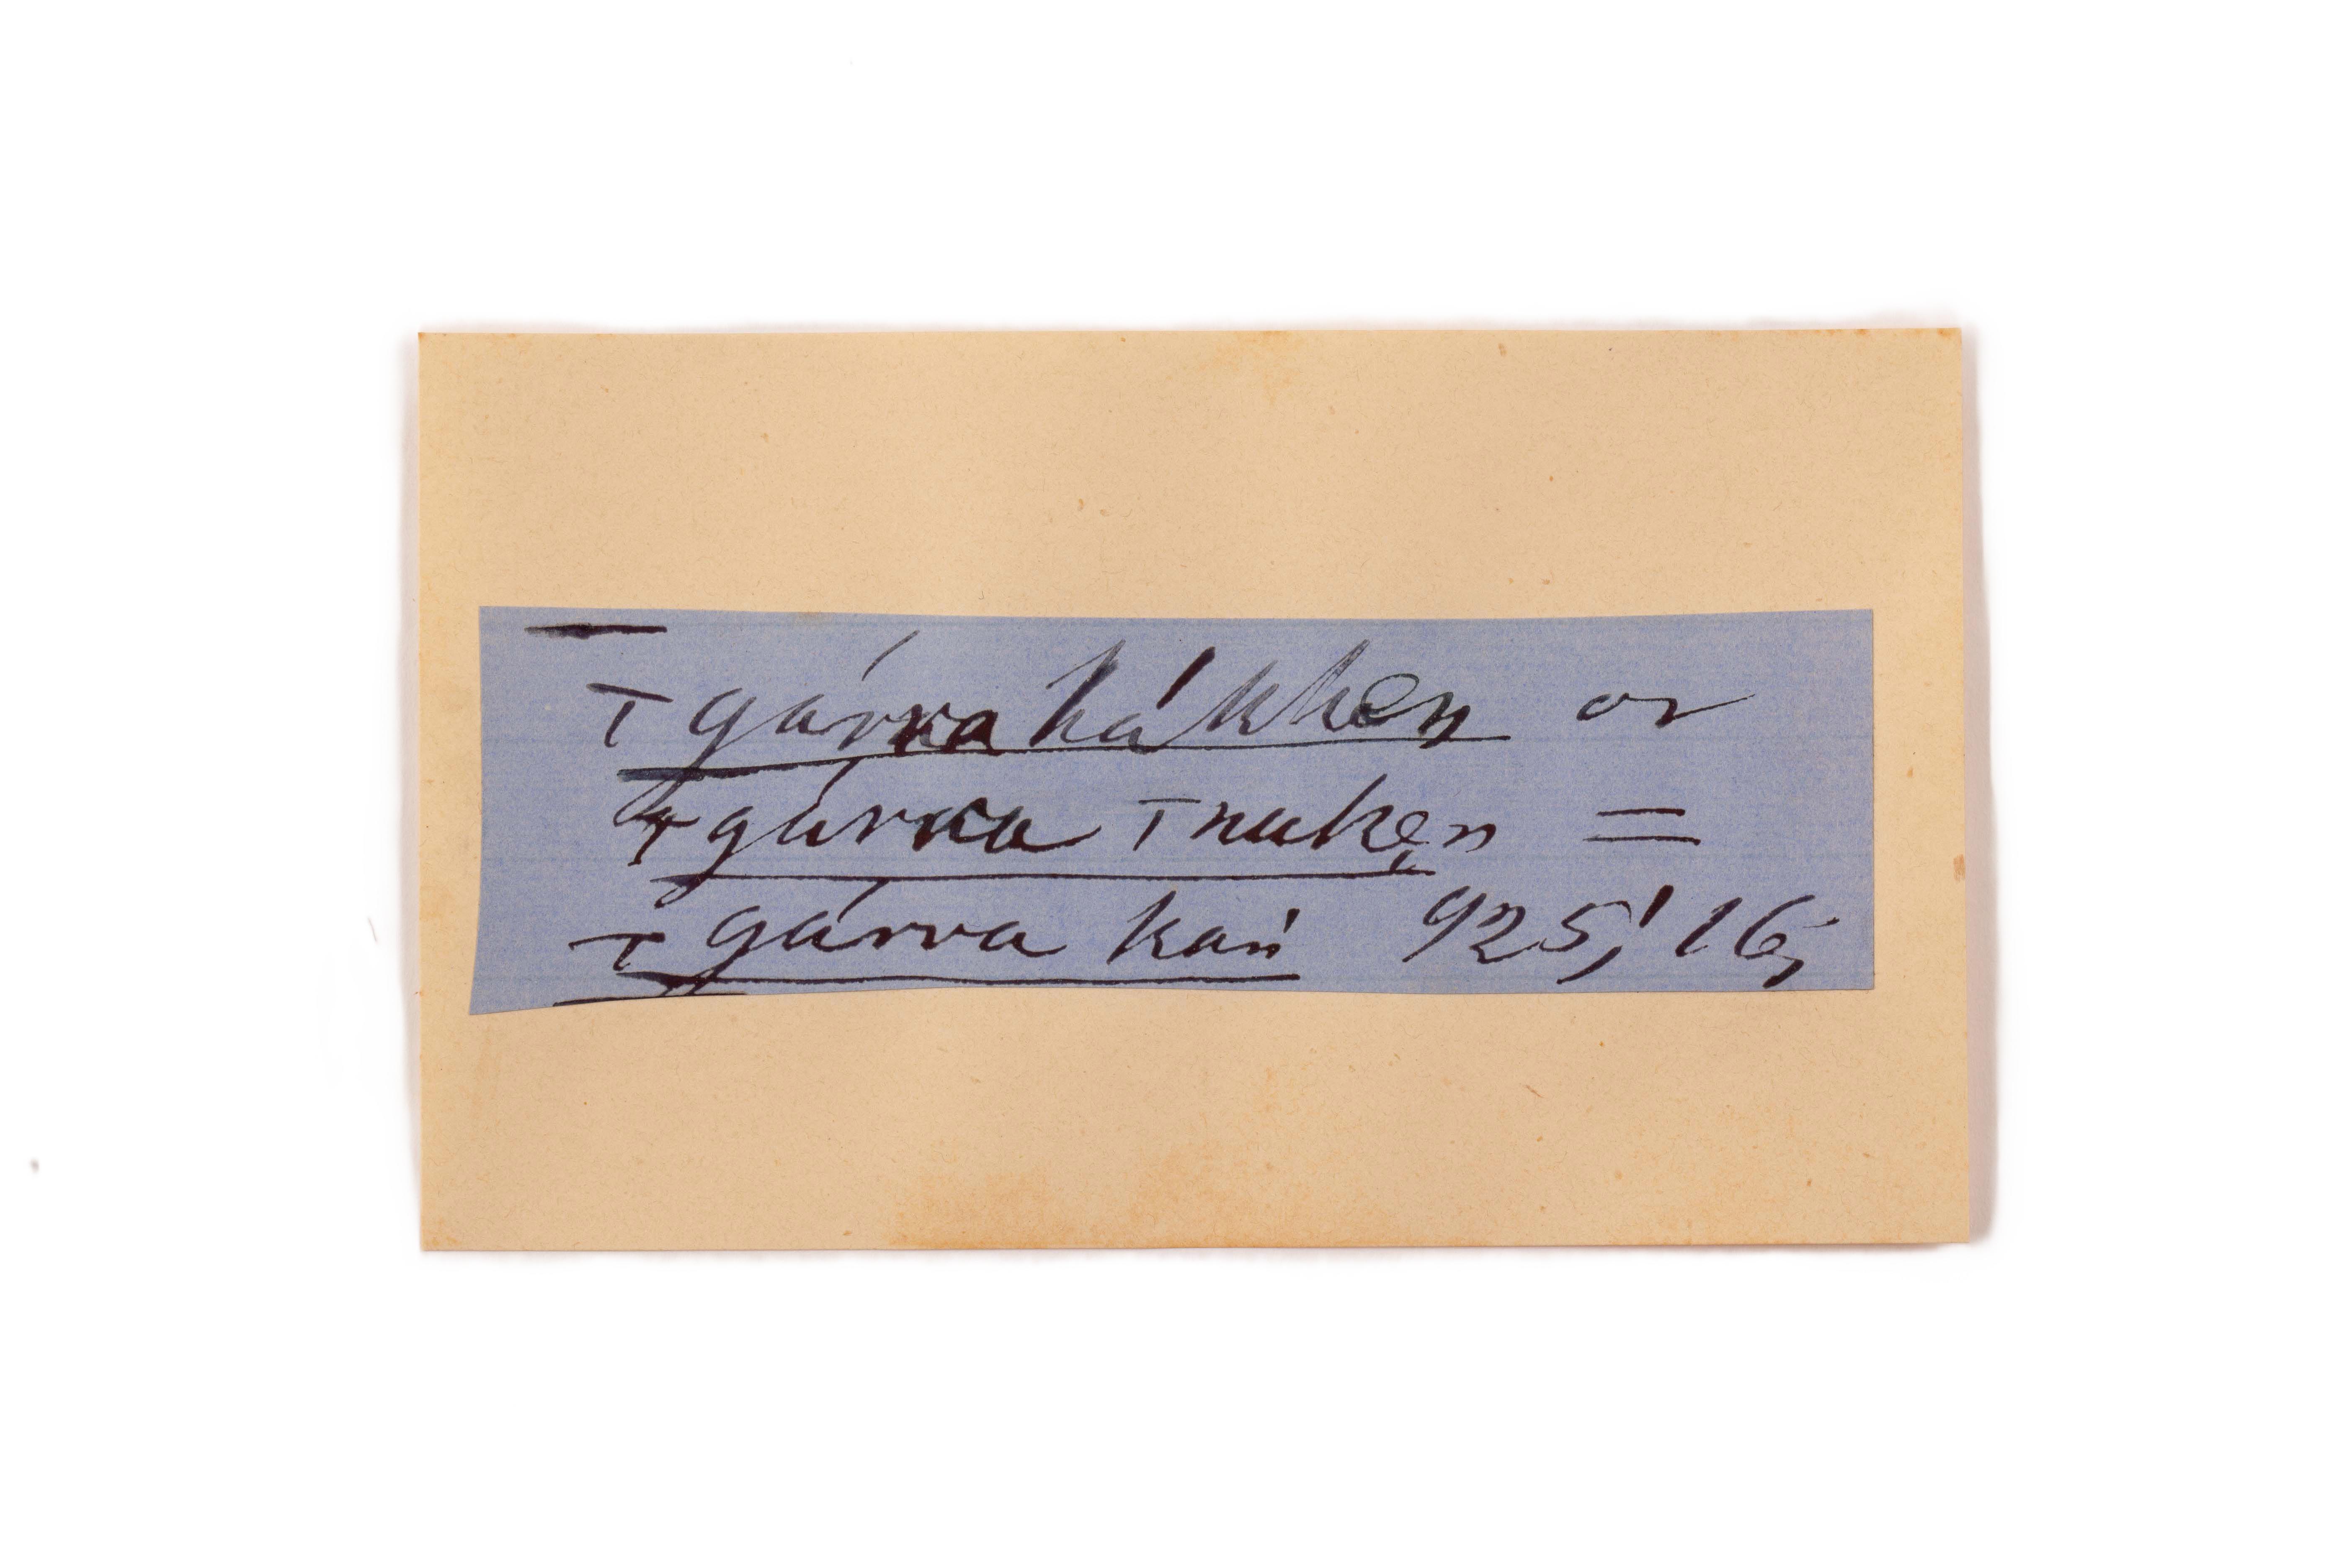 ⊤gárra hákken or
⊤gárra ⊤nuken =
⊤gárra kań 925,' 16;